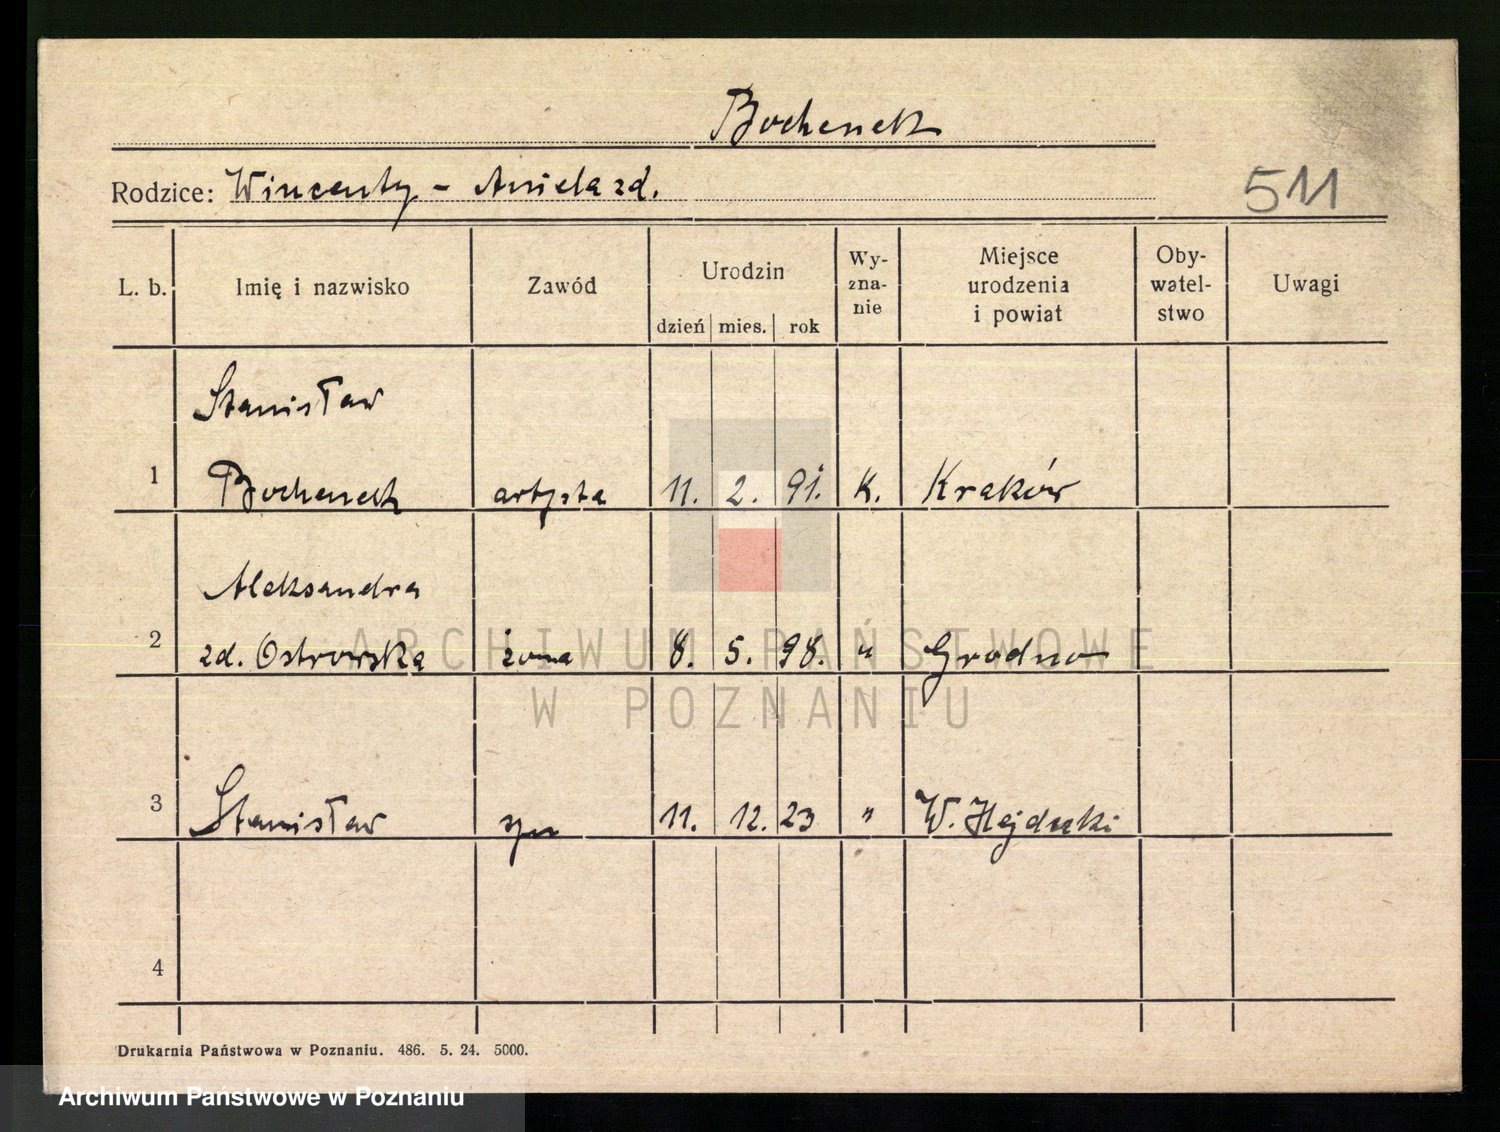 Bochenek
Rodzice: Wincenty - Aniela zd.
511
L. b. Imię i nazwisko Zawód Urodzin dzień mies. rok Wy-zna-nie Miejsce urodzenia i powiat Oby-watel-stwo Uwagi
Stanisław
1 Bochenek artysta 11. 2. 91. K. Kraków
Aleksandra
2 zd. Ostrowska żona 8. 5. 98. " Grodno
3 Stanisław syn 11. 12. 23 " W. Hejduki
4
ARCHIWUM PAŃSTWOWE
W POZNANIU
Drukarnia Państwowa w Poznaniu. 486. 5. 24. 5000.
Archiwum Państwowe w Poznaniu